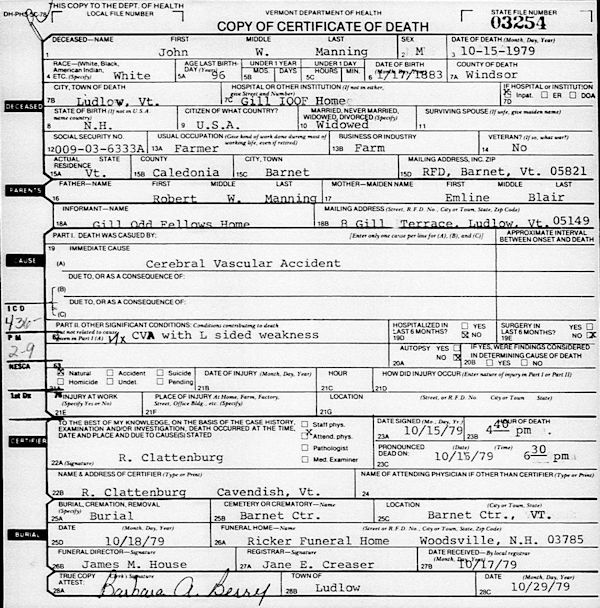 THIS COPY TO THE DEPT. OF HEALTH
LOCAL FILE NUMBER
VERMONT DEPARTMENT OF HEALTH
STATE FILE NUMBER
03254
COPY OF CERTIFICATE OF DEATH
DECEASED—NAME FIRST MIDDLE LAST SEX DATE OF DEATH (Month, Day, Year)
1 John W. Manning 2 M 3 10-15-1979
RACE—(White, Black, American Indian, ETC. (Specify) AGE LAST BIRTHDAY (Years) UNDER 1 YEAR UNDER 1 DAY COUNTY OF DEATH
4 White 5A 96 5B MOS. DAYS 5C HOURS MIN. 6 1/17/1883 7A Windsor
CITY, TOWN OF DEATH HOSPITAL OR OTHER INSTITUTION (If not in either, give Street and Number) IF HOSPITAL OR INSTITUTION
7B Ludlow, Vt. 7C Gill IOOF Home 7D Inpat. ER DOA
DECEASED
STATE OF BIRTH (If not in U.S.A. name country) CITIZEN OF WHAT COUNTRY? MARRIED, NEVER MARRIED, WIDOWED, DIVORCED (Specify) SURVIVING SPOUSE (If wife, give maiden name)
8 N.H. 9 U.S.A. 10 Widowed 11
SOCIAL SECURITY NO. USUAL OCCUPATION (Give kind of work done during most of working life, even if retired) BUSINESS OR INDUSTRY VETERAN? (If so, what war?)
12 009-03-6333A 13A Farmer 13B Farm 14 No
ACTUAL RESIDENCE STATE COUNTY CITY, TOWN MAILING ADDRESS, INC. ZIP
15A Vt. 15B Caledonia 15C Barnet 15D RFD, Barnet, Vt. 05821
PARENTS
FATHER—NAME FIRST MIDDLE LAST MOTHER—MAIDEN NAME FIRST LAST
16 Robert W. Manning 17 Emline Blair
INFORMANT—NAME MAILING ADDRESS (Street, R.F.D. No., City or Town, State, Zip Code)
18A Gill Odd Fellows Home 18B 8 Gill Terrace, Ludlow, Vt. 05149
PART I. DEATH WAS CAUSED BY: [Enter only one cause per line for (A), (B), and (C)] APPROXIMATE INTERVAL BETWEEN ONSET AND DEATH
19 IMMEDIATE CAUSE
CAUSE
(A) Cerebral Vascular Accident
DUE TO, OR AS A CONSEQUENCE OF:
(B)
DUE TO, OR AS A CONSEQUENCE OF:
(C)
ICD
436-
PART II. OTHER SIGNIFICANT CONDITIONS: Conditions contributing to death but not related to cause given in Part I (A) HOSPITALIZED IN LAST 6 MONTHS? YES NO SURGERY IN LAST 6 MONTHS? YES NO
CVA with L sided weakness 19D 19E
PM
2-9
AUTOPSY YES NO IF YES, WERE FINDINGS CONSIDERED IN DETERMINING CAUSE OF DEATH
20A 20B YES NO
NESCA
Natural Accident Suicide DATE OF INJURY (Month, Day, Year) HOUR HOW DID INJURY OCCUR (Enter nature of injury in Part I or Part II)
21A Homicide Undet. Pending 21B 21C 21D
1st Dx
INJURY AT WORK (Specify Yes or No) PLACE OF INJURY At Home, Farm, Factory, Street, Office Bldg., etc. (Specify) LOCATION (Street, or R.F.D. No. City or Town State)
21E 21F 21G
TO THE BEST OF MY KNOWLEDGE, ON THE BASIS OF THE CASE HISTORY, EXAMINATION AND/OR INVESTIGATION, DEATH OCCURRED AT THE TIME, DATE AND PLACE AND DUE TO CAUSE(S) STATED
Staff phys.
Attend. phys.
Pathologist
Med. Examiner
DATE SIGNED (Mo., Day, Yr.) HOUR OF DEATH
23A 10/15/79 23B 4 40 pm
CERTIFIER
22A (Signature) R. Clattenburg
PRONOUNCED DEAD ON: (Date) (Time)
23C 10/15/79 6 30 pm
NAME & ADDRESS OF CERTIFIER (Type or Print) NAME OF ATTENDING PHYSICIAN IF OTHER THAN CERTIFIER (Type or Print)
22B R. Clattenburg Cavendish, Vt. 24
BURIAL, CREMATION, REMOVAL (Specify) CEMETERY OR CREMATORY—Name LOCATION (City or Town, State)
25A Burial 25B Barnet Ctr. 25C Barnet Ctr., VT.
BURIAL
DATE (Month, Day, Year) FUNERAL HOME—Name (Street or R.F.D. No., City or Town, State, Zip Code)
25D 10/18/79 26A Ricker Funeral Home Woodsville, N.H. 03785
FUNERAL DIRECTOR—Signature REGISTRAR—Signature DATE RECEIVED—By local registrar (Month, Day, Year)
26B James M. House 27A Jane E. Creaser 27B 10/17/79
TRUE COPY ATTEST: Clerk's Signature TOWN OF DATE (Month, Day, Year)
28A Barbara A. Berry 28B Ludlow 28C 10/29/79